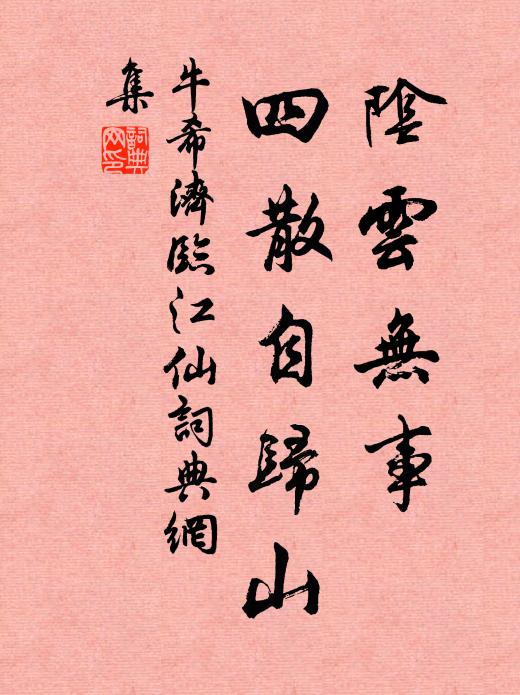 陰雲無事
四散自歸山
牛希濟臨江仙詞典網
集
詞典網印